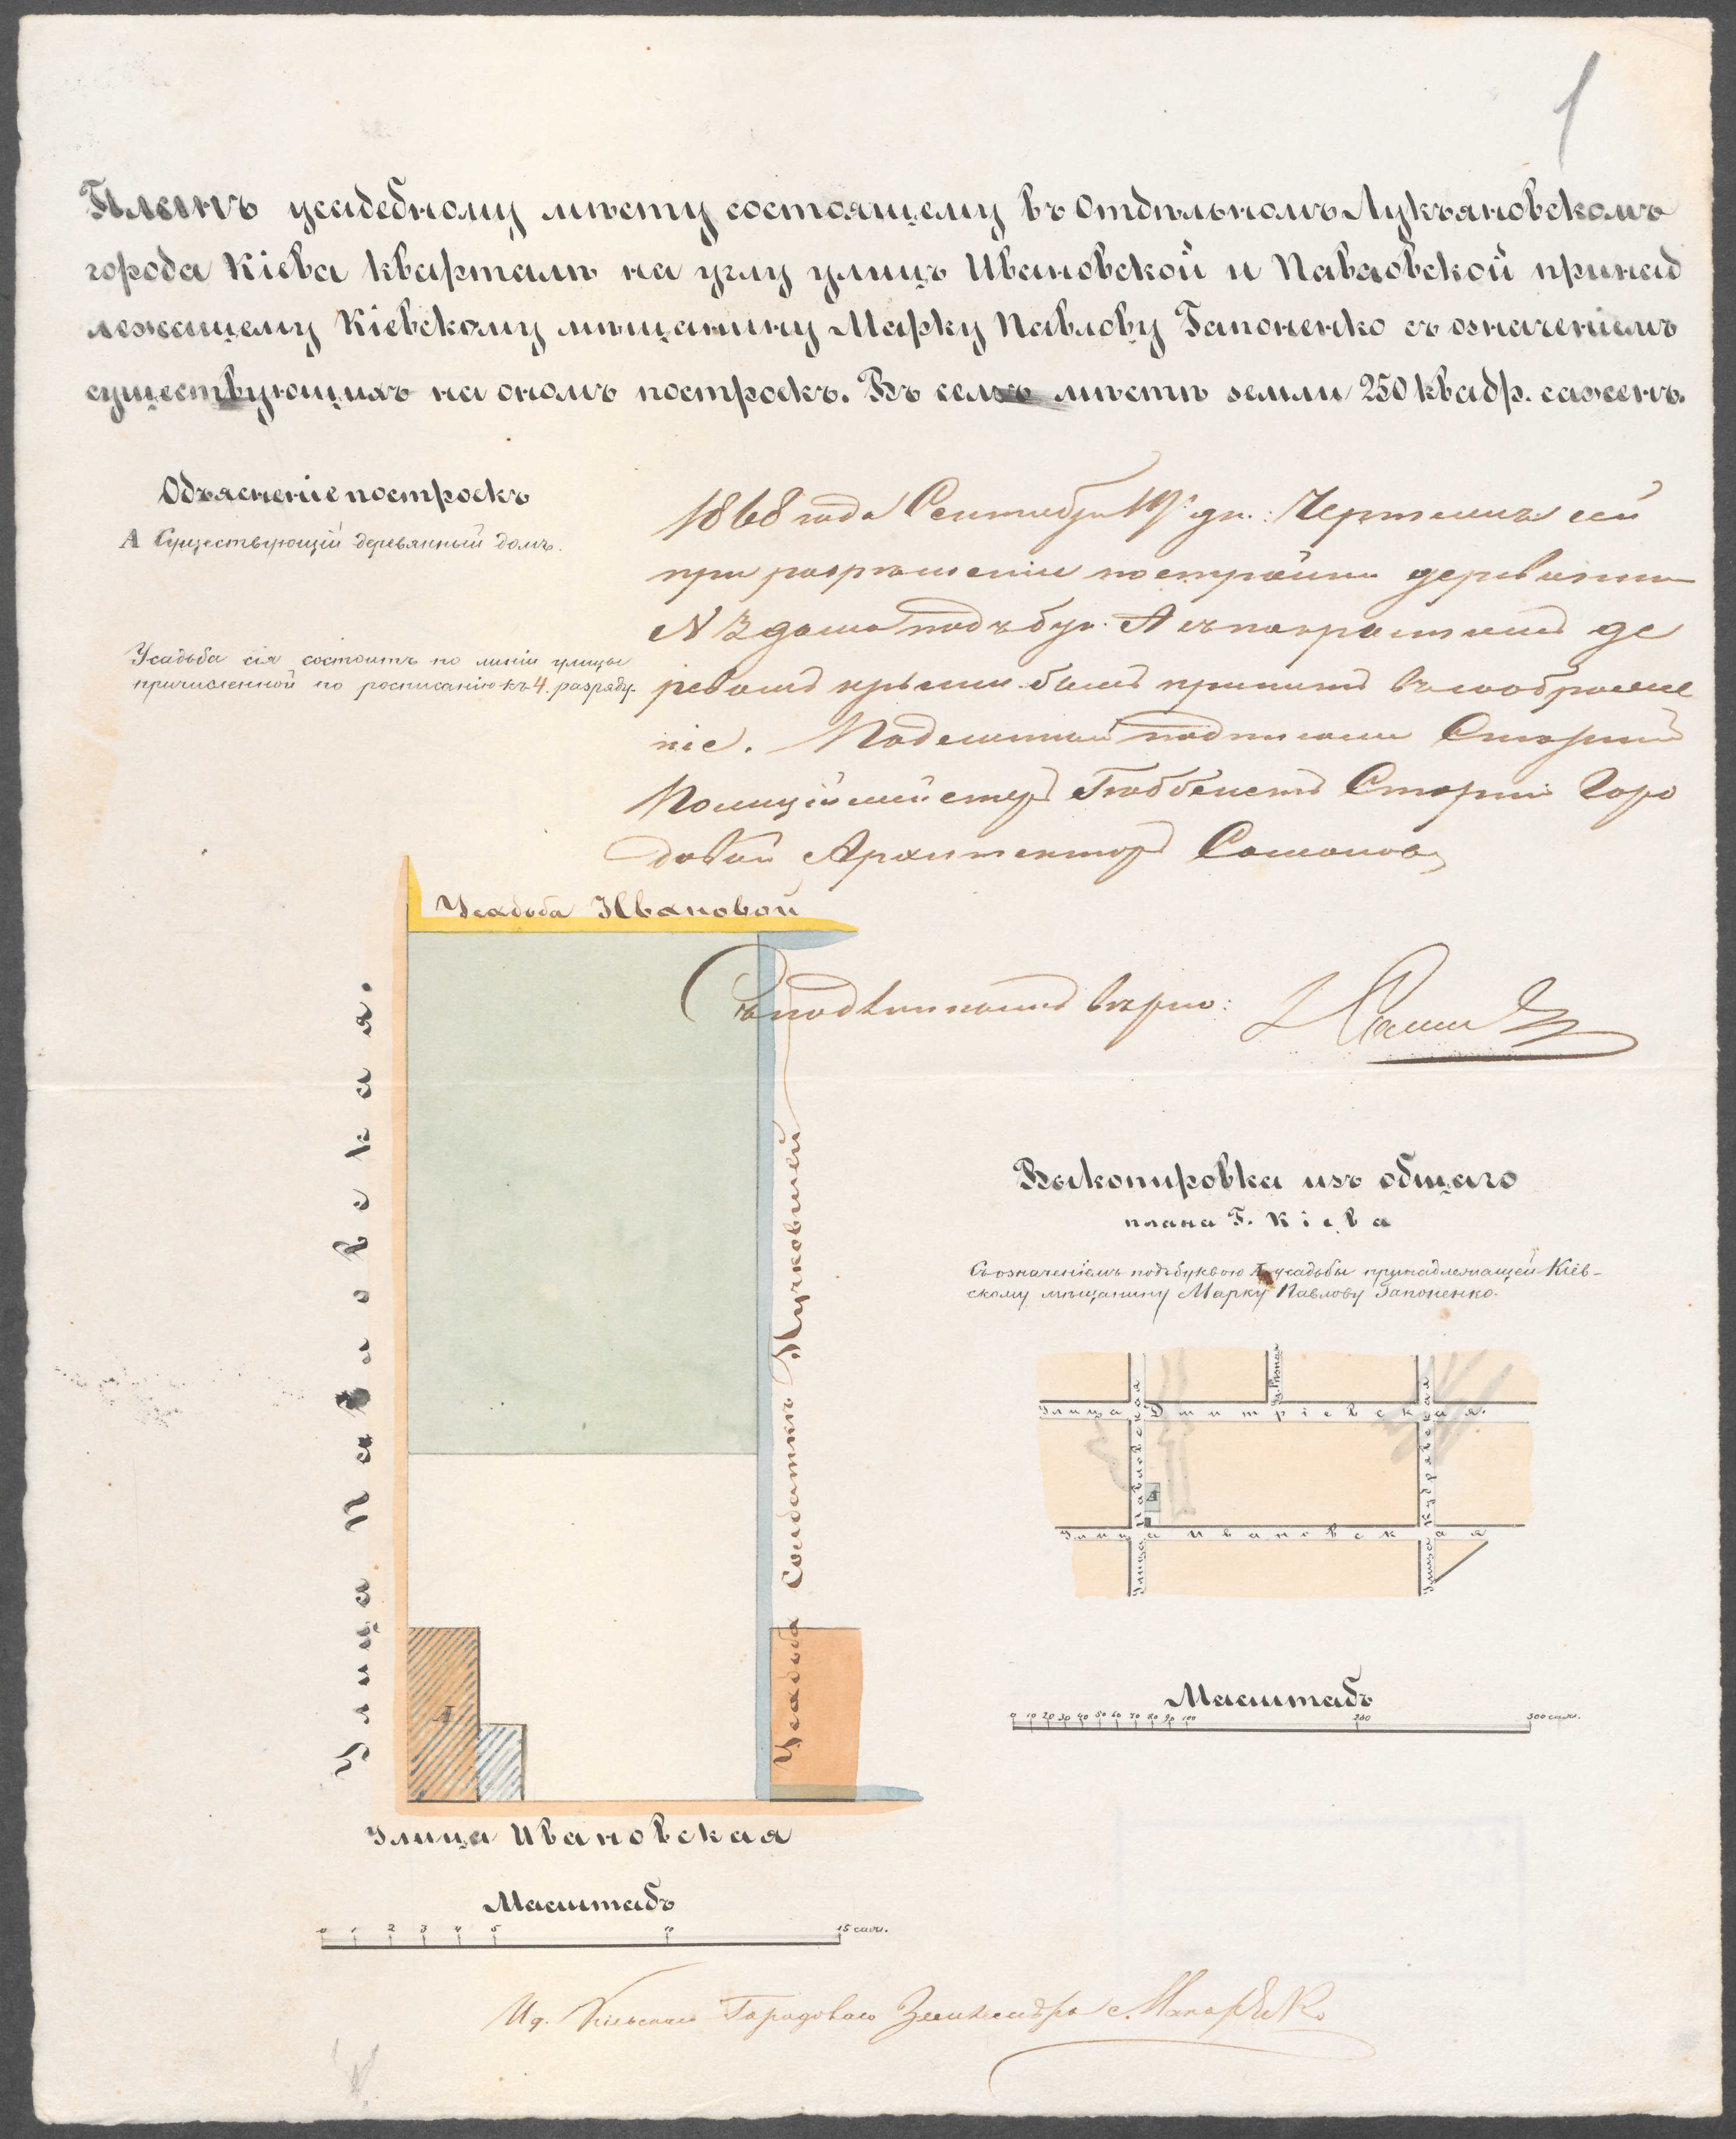 1
Планъ усадебному мѣсту состоящему въ Отдѣльномъ Лукьяновскомъ
города Кіева кварталѣ на углу улицъ Ивановской и Павловской принад
лежащему Кіевскому мѣщанину Марку Павлову Гапоненко съ означеніемъ
существующихъ на ономъ построекъ. Въ семъ мѣстѣ земли 250 квадр. сажень.
Объясненіе построекъ
А Существующій деревянный домъ.
Усадьба сія состоитъ по линіи улицы
причисленной по росписанію къ 4. разряду.
1868 года Сентября 19 дн.: Чертежъ сей
при разрѣшеніи постройки деревянн
дома подъ бук. А съ пакрытіемъ де
ревомъ крыши былъ принятъ въ соображе
ніе. Подлинный подписали Старшій
Полиціймейстеръ Гюббенетъ Старшій Горо
довой Архитекторъ
Съ подлиннымъ вѣрно:
Усадьба Ивановой
Улица Павловская.
Усадьба Солдатки Пучковшей
А
Улица Ивановская
Масштабъ
0 1 2 3 4 5 10 15 саж.
Выкопировка изъ общаго
плана Г. Кіева
Съ означеніемъ подъ буквою А усадьбы принадлежащей Кіев-
скому мѣщанину Марку Павлову Гапоненко.
Улица Дмитріевская.
Улица Павловская
Улица Кудрявская
А
Улица Ивановская
Масштабъ
0 10 20 30 40 50 60 70 80 90 100 200 300 саж.
Ид. Кіевскаго Городоваго Землемѣра